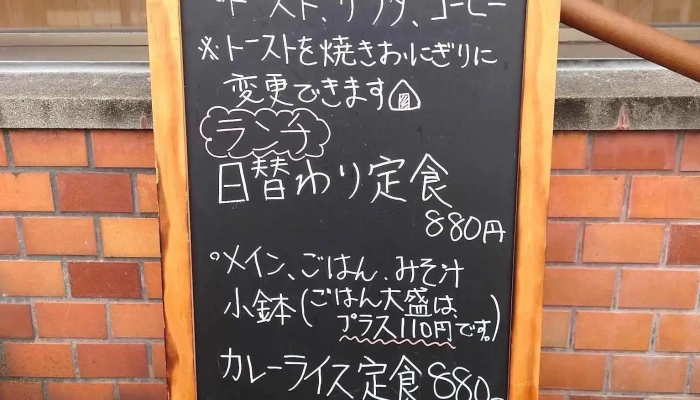 トースト、サラダ、コーヒー
※トーストを焼きおにぎりに
変更できます
ランチ
日替わり定食
880円
°メイン、ごはん、みそ汁
小鉢(ごはん大盛は、
プラス110円です。)
カレーライス定食880